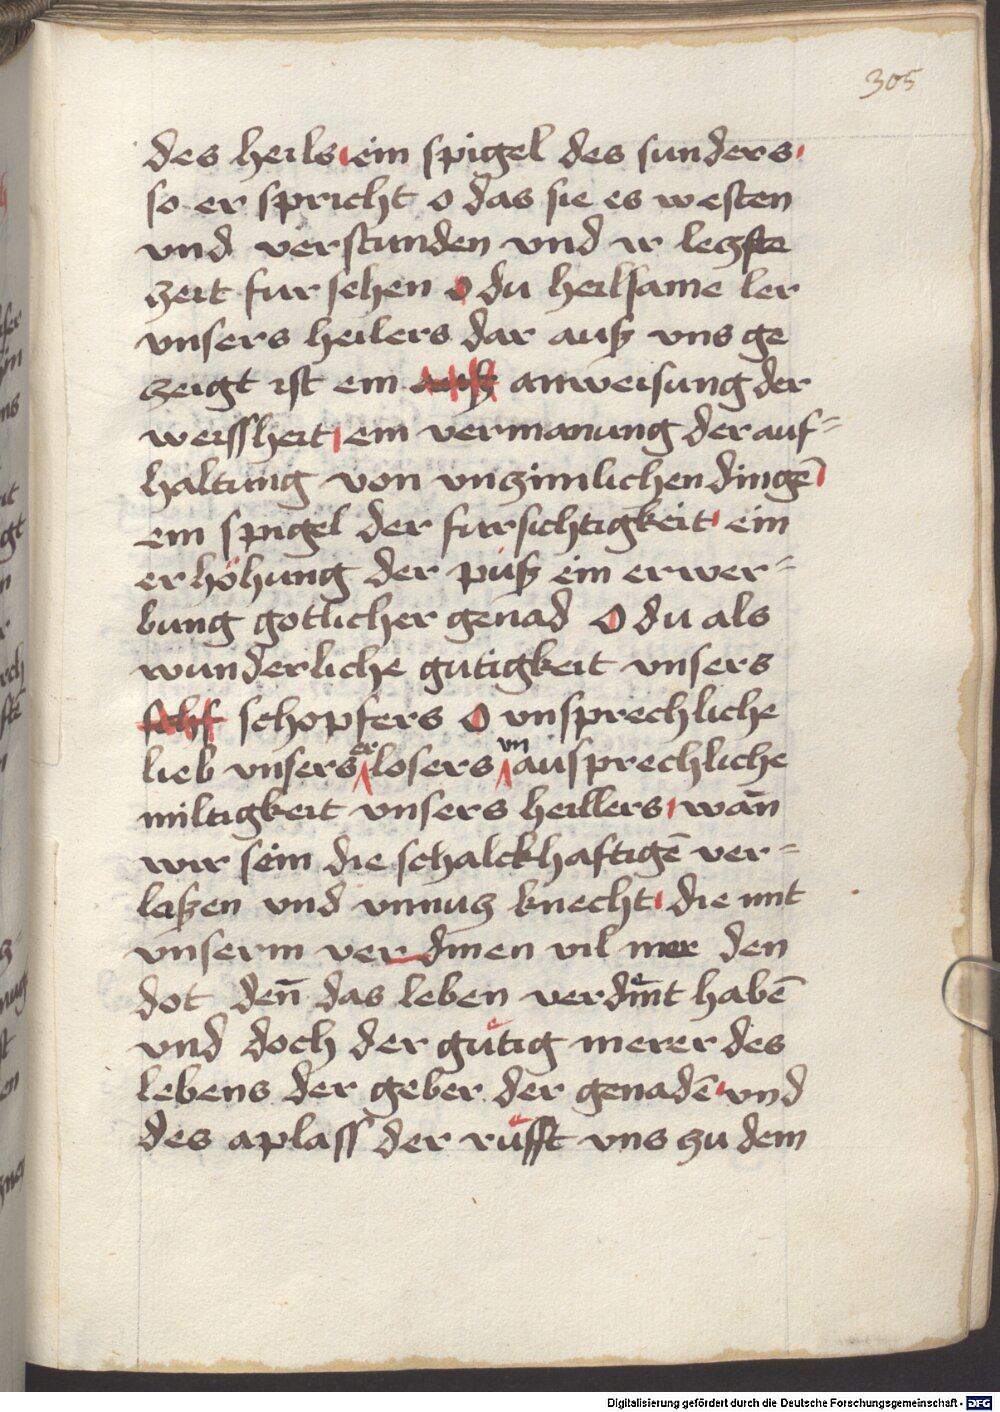 305
des heils ein spigel des sunders
so er spricht o das sie es westen
vnd verstunden vnd ir leczste
zeit fur sehen O du heilsame ler
vnsers heilers dar auß vns ge
zeigt ist ein auß anweisung der
weissheit ein vermanung der auf=
haltung von vnzimlichen dingē
ein spigel der fursichtigkeit ein
erhöhung der puß ein erwer=
bung gotlicher genad O du als
wunderliche gutigkeit vnsers
schf schopfers O vnsprechliche
lieb vnsers erlosers vnausprechliche
miltigkeit vnsers heillers wan̄
wir sein die schalckhaftigē ver=
laßen vnd vnnucz knecht die mit
vnserm verdinen vil mer den
dot den̄ das leben verdint habē
vnd doch der gutig merer des
lebens der geber der genadē vnd
des aplass der rufft vns zu dem
Digitalisierung gefördert durch die Deutsche Forschungsgemeinschaft - DFG